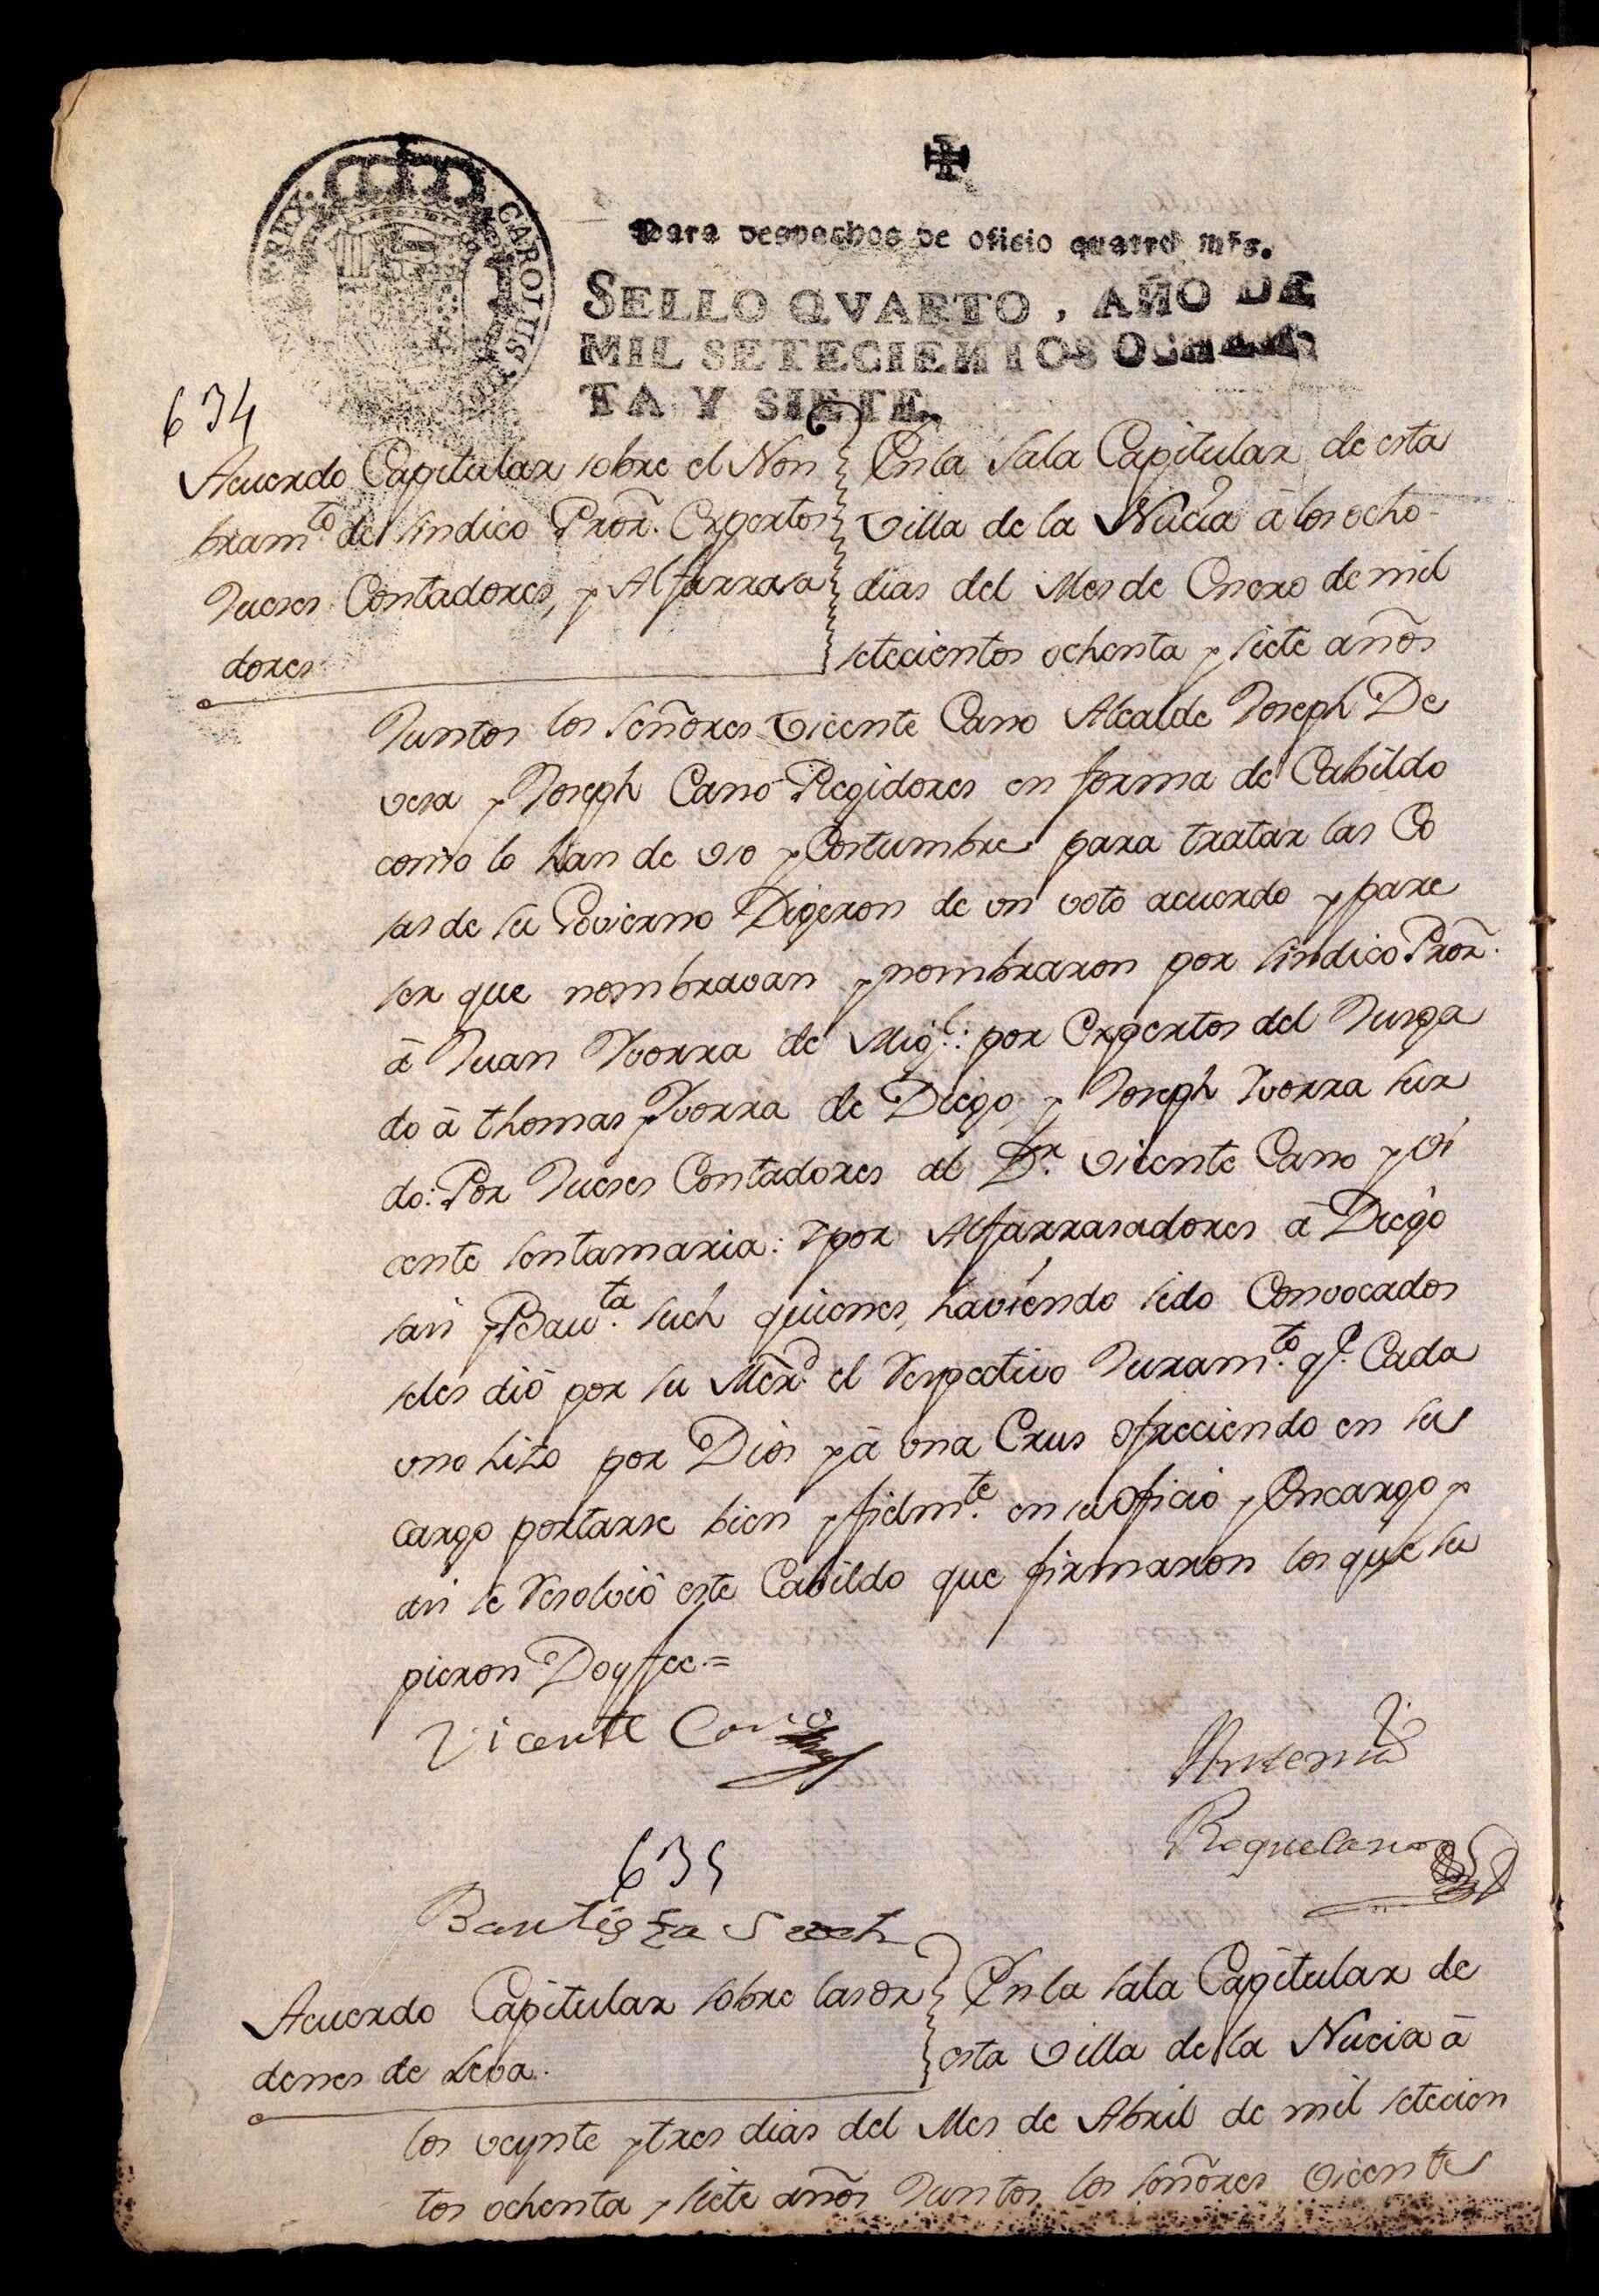 REX. CAROLUS
Para despachos de oficio quatro mrs.
SELLO QVARTO, AÑO DE
MIL SETECIENTOS OCHEN
TA Y SIETE.
634
Acuerdo Capitular sobre el Non
bramto. del sindico Pror. Expertos
Jueses Contadores, y Alfarrasa
dores
En la Sala Capitular de esta
Villa de la Nucia â los ocho
dias del Mes de Enero de mil
setecientos ochenta y siete años
Juntos los señores Vicente Cano Alcalde Joseph De
vesa y Joseph Cano Regidores en forma de Cabildo
como lo han de vso y Costumbre para tratar las Co
sas de su Govierno Digeron de un voto acuerdo y pare
ser que nombravan y nombraron por sindico Pror.
â Juan Yvorra de Migl: por Expertos del Jusga
do â thomas Yvorra de Diego, y Joseph Yvorra sur
do: Por Jueses Contadores al Dr. Vicente Cano y Vi
cente Santamaria: y por Alfarrasadores â Diego
san y Bauta. Such quienes, haviendo sido Convocados
seles diô por su Merd. el Respectivo Juramto. qe. Cada
uno hizo por Dios y â una Crus ofreciendo en su
cargo portarse bien y fielmte. en su Oficio y Encargo y
asi se Resolviô este Cabildo que firmaron los que su
pieron Doy fee.=
Vicente Cano
Antemi
Roque Cano
635
Bautista Such
Acuerdo Capitular sobre las or
denes de Leva.
En la sala Capitular de
esta Villa de la Nucia â
los veynte y tres dias del Mes de Abril de mil setecien
tos ochenta y siete años Juntos los señores Vicente